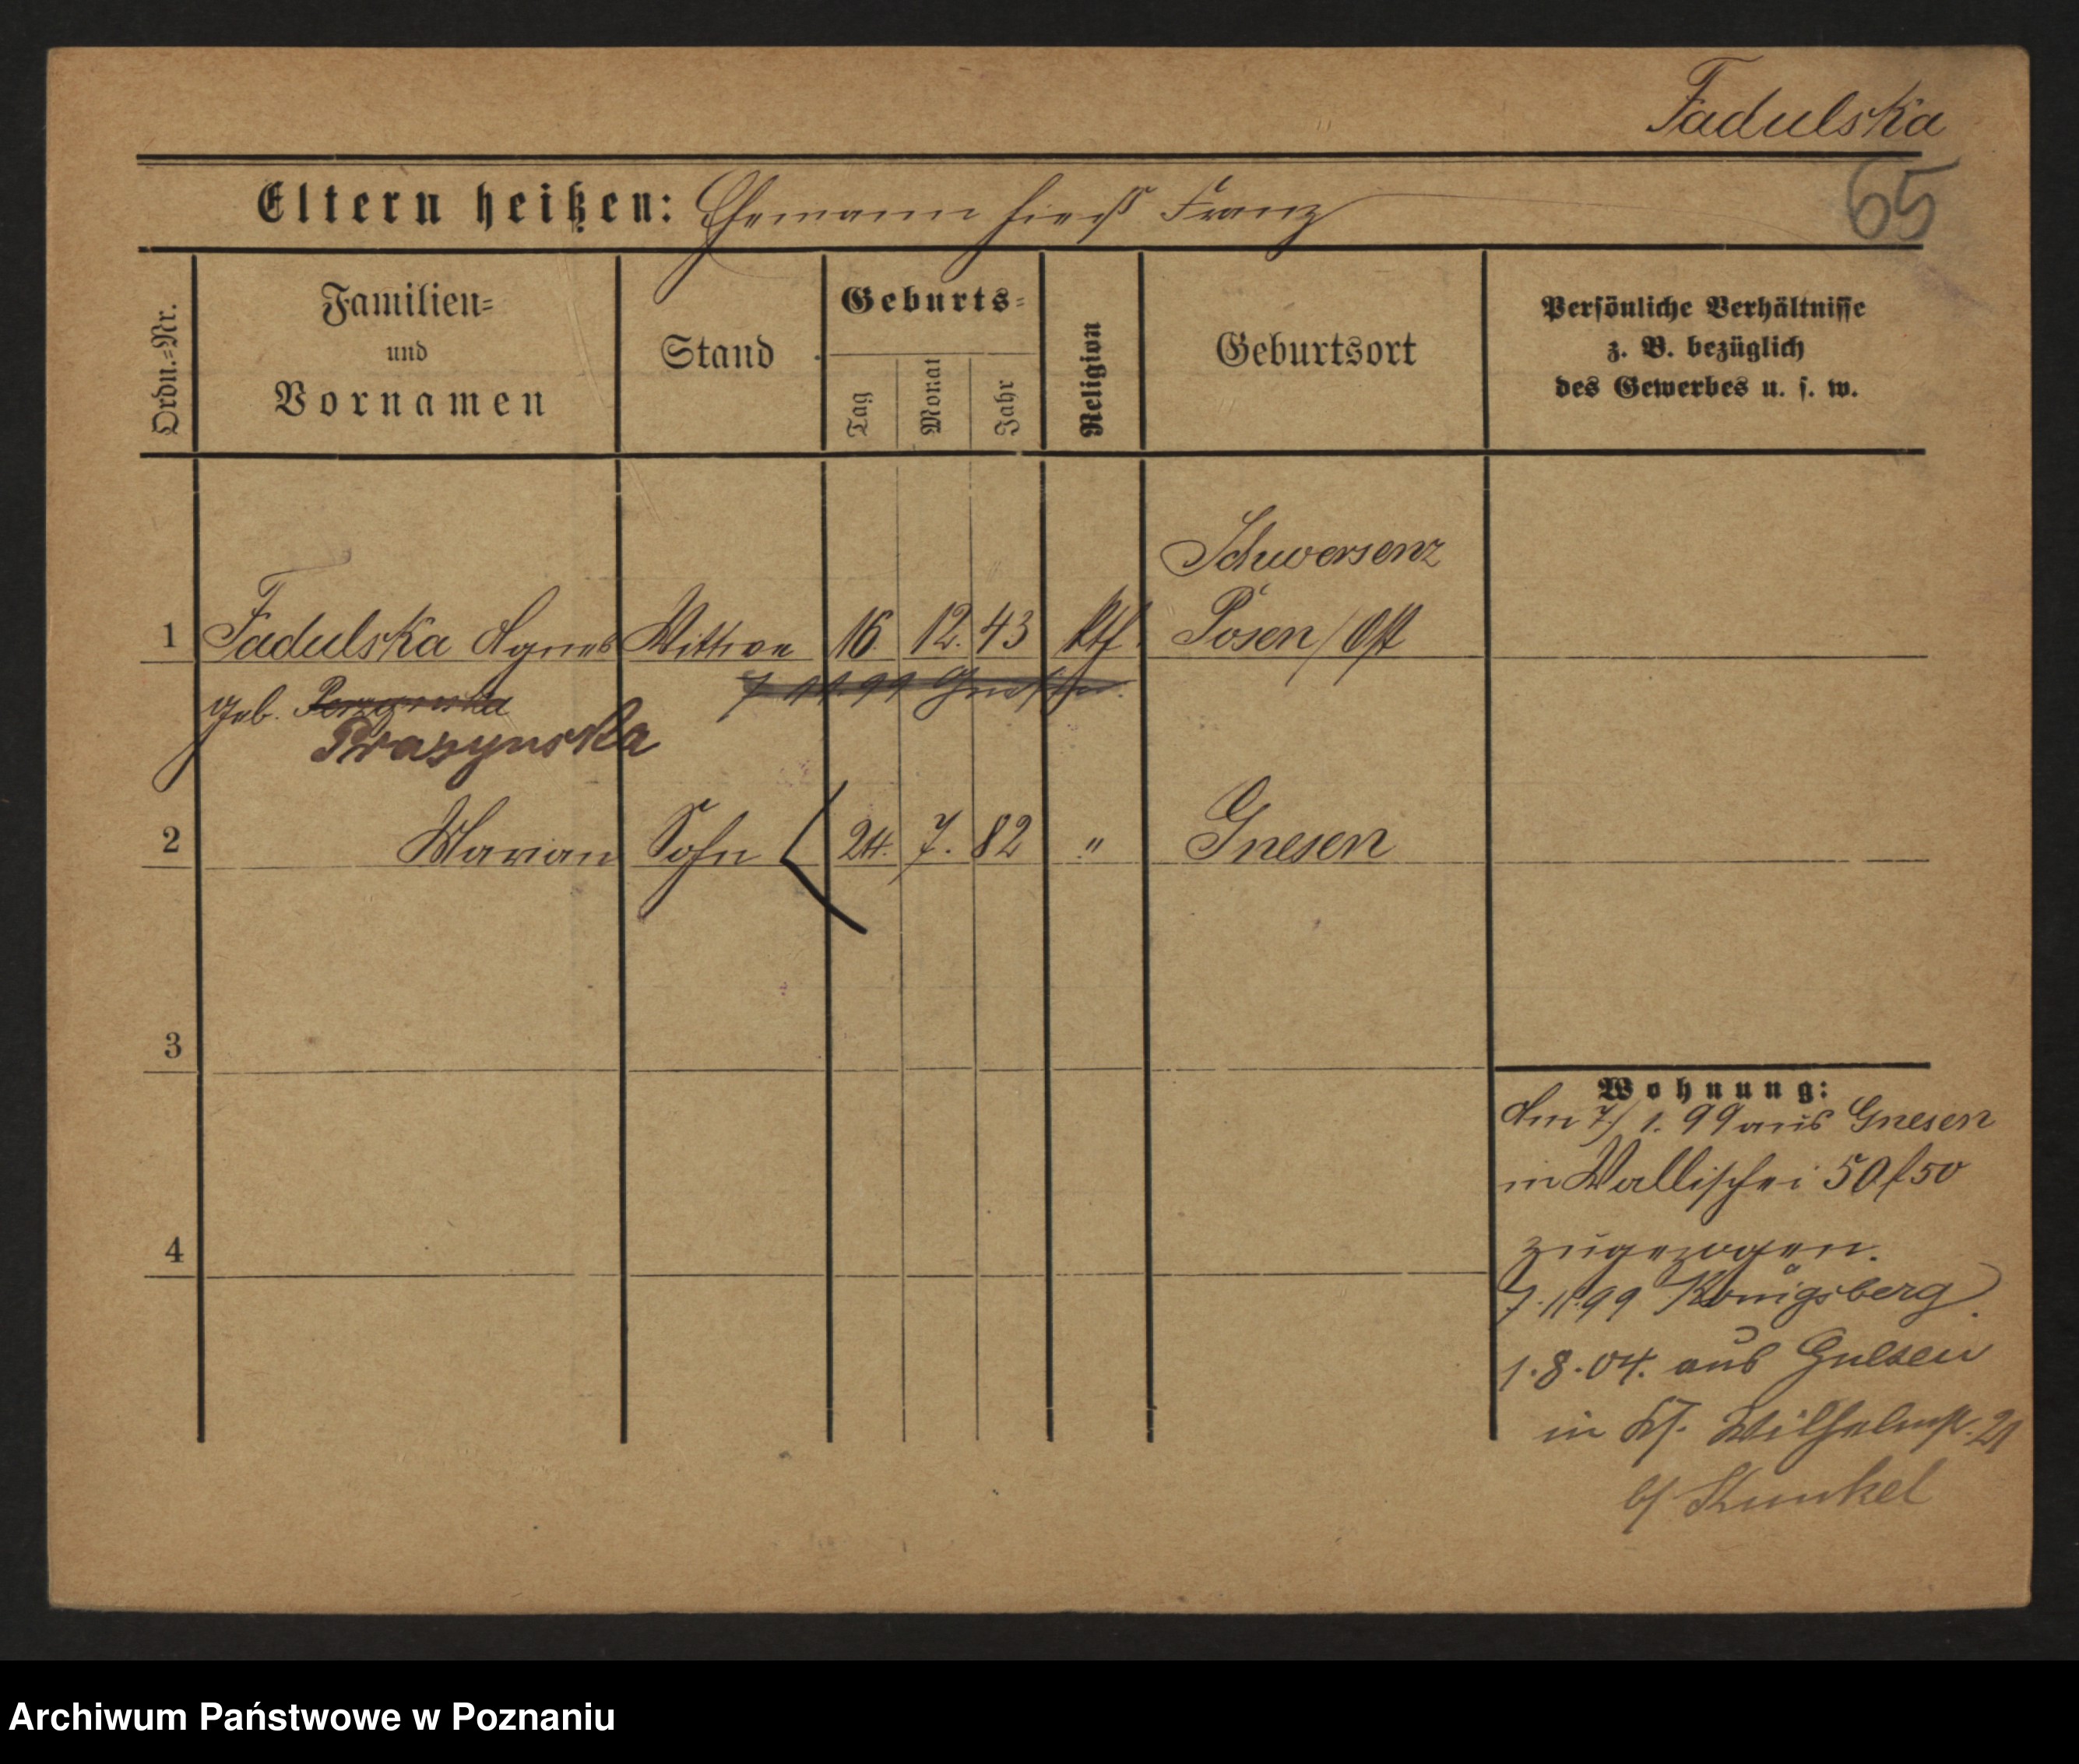 Fadulska
65
Eltern heißen: Ehemann hieß Franz
Ordn.=Nr.
Familien=
und
Vornamen
Stand
Geburts=
Tag
Monat
Jahr
Religion
Geburtsort
Persönliche Verhältnisse
z. B. bezüglich
des Gewerbes u. s. w.
Schwersenz
1 Fadulska Agnes Wittwe 16. 12. 43 kth. Posen/Ost
geb.
7 11. 99
Prazynska
2 Marian Sohn 24. 7. 82 " Gnesen
3
4
Wohnung:
Am 7./1. 99 aus Gnesen
in Wallischei 50/50
zugezogen.
7.11.99 Königsberg.
1.8.04. aus Gnesen
in Wilhelmstr. 21
b/ Kunkel
Archiwum Państwowe w Poznaniu